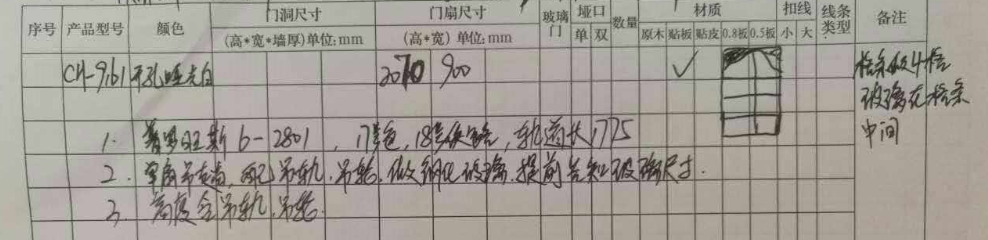 序号 产品型号 颜色 门洞尺寸 (高*宽*墙厚)单位:mm 门扇尺寸 (高*宽)单位:mm 玻璃门 垭口 单 双 数量 材质 原木 贴板 贴皮 0.8板 0.5板 扣线 小 大 线条类型 备注
CH-9161 开孔哑光白 2070 900 ✓
格条 4格
玻璃在格条
中间
1. 斯 6-2801, 色, 轨道长1775
2. 单扇吊走 吊轨.吊轮.做钢化玻璃.提前告知玻璃尺寸.
3. 高度含吊轨.吊轮.